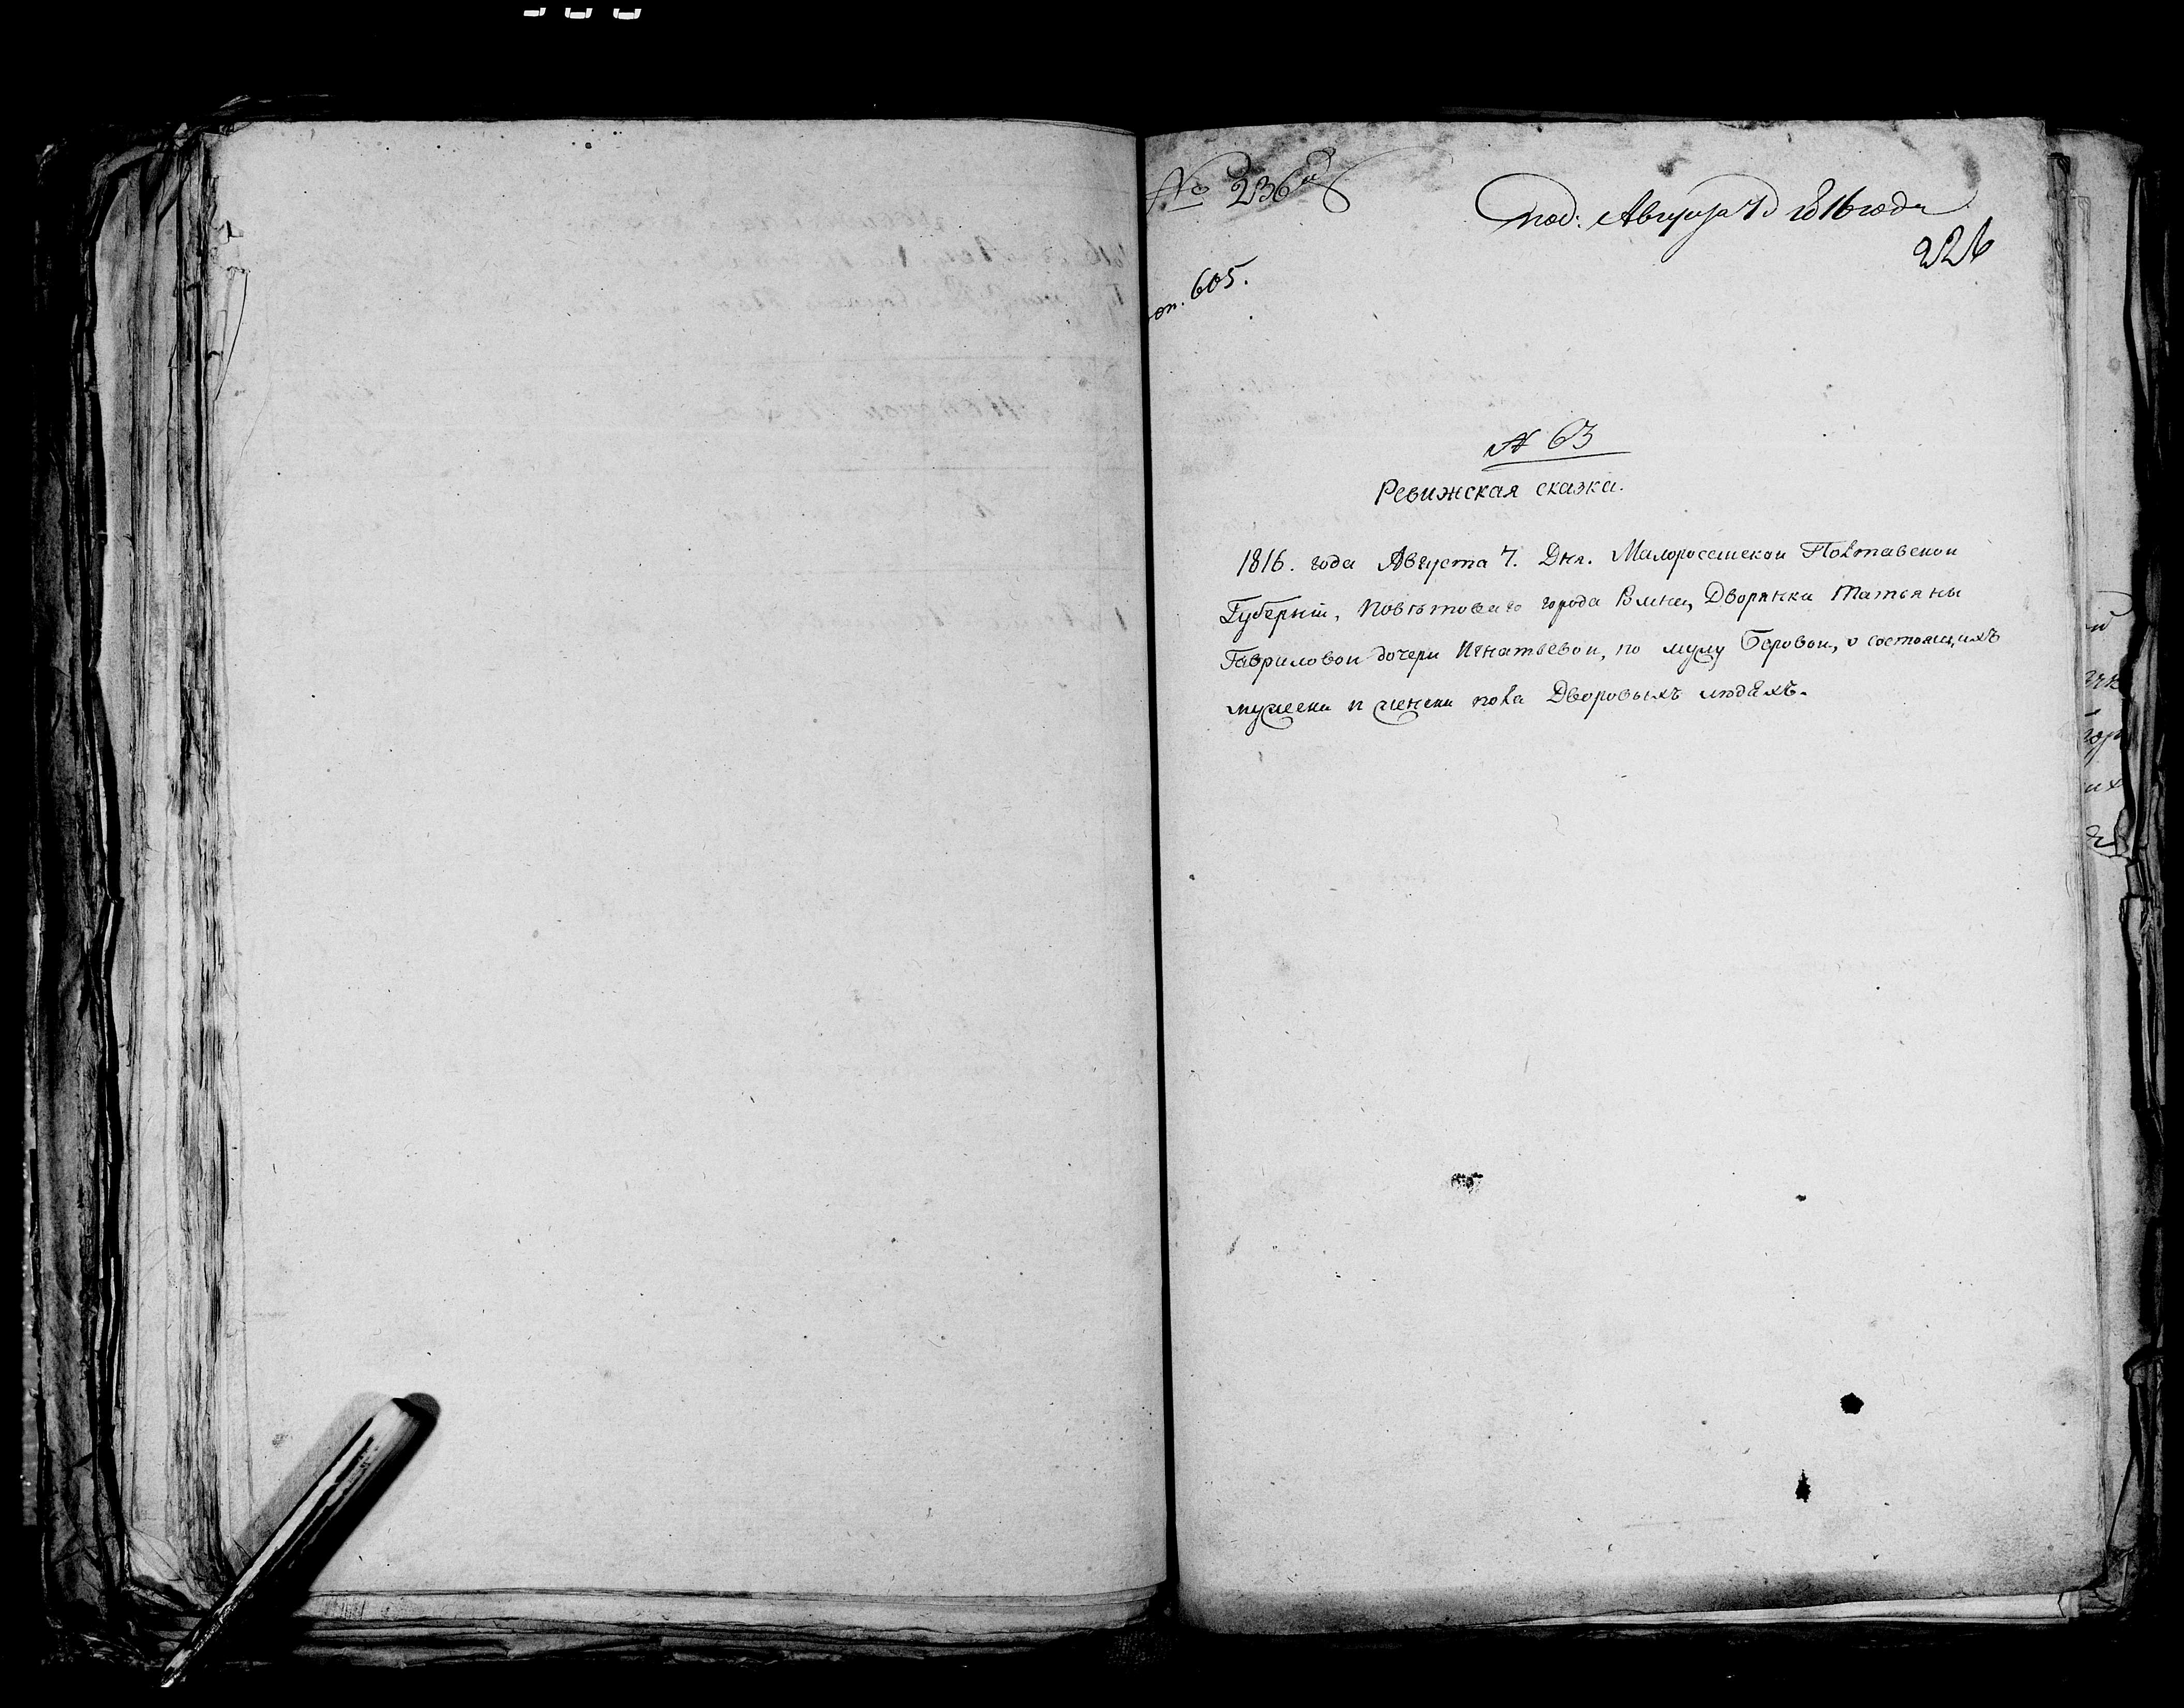 № 236й
под: Августа 7д 1816 года
226
от. 605.
№ 63
Ревижская сказка.
1816. года Августа 7. Дня. Малороссискои Полтавскои
Губерніи, Повѣтоваго города Ромна, Дворянки Татьяны
Гавриловои дочери Игнатьевои, по мужу Беровои, о состоящихъ
мужеска и женска пола Дворовыхъ людяхъ.